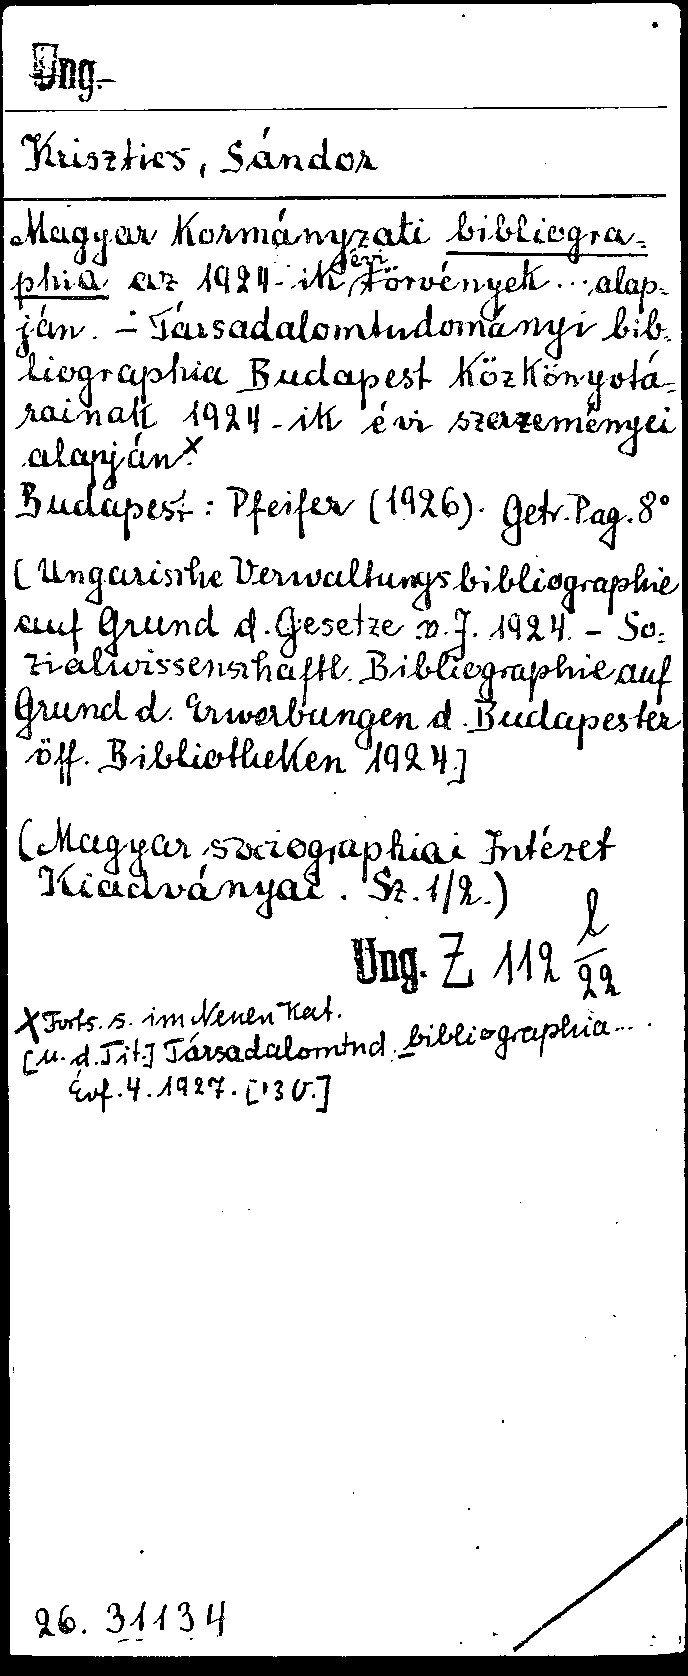 Ung.
Krisztics, Sándor
Magyar Kormányzati bibliogra-
phia az 1924-ik évi törvények ... alap-
ján. - Társadalomtudományi bib-
liographia Budapest Közkönyvtá-
rainak 1924-ik évi szerzeményei
alapján.x
Budapest: Pfeifer (1926). Getr. Pag. 8°
[Ungarische Verwaltungsbibliographie
auf Grund d. Gesetze v. J. 1924. - So-
zialwissenschaftl. Bibliographie auf
Grund d. Erwerbungen d. Budapester
öff. Bibliotheken 1924.]
(Magyar sociographiai Intézet
Kiadványai. Sz. 1/2.)
Ung. Z 112 l/22
x Forts. s. im Neuen Kat.
[u. d. Tit.] Társadalomtud. bibliographia...
Évf. 4. 1927.
26. 31134